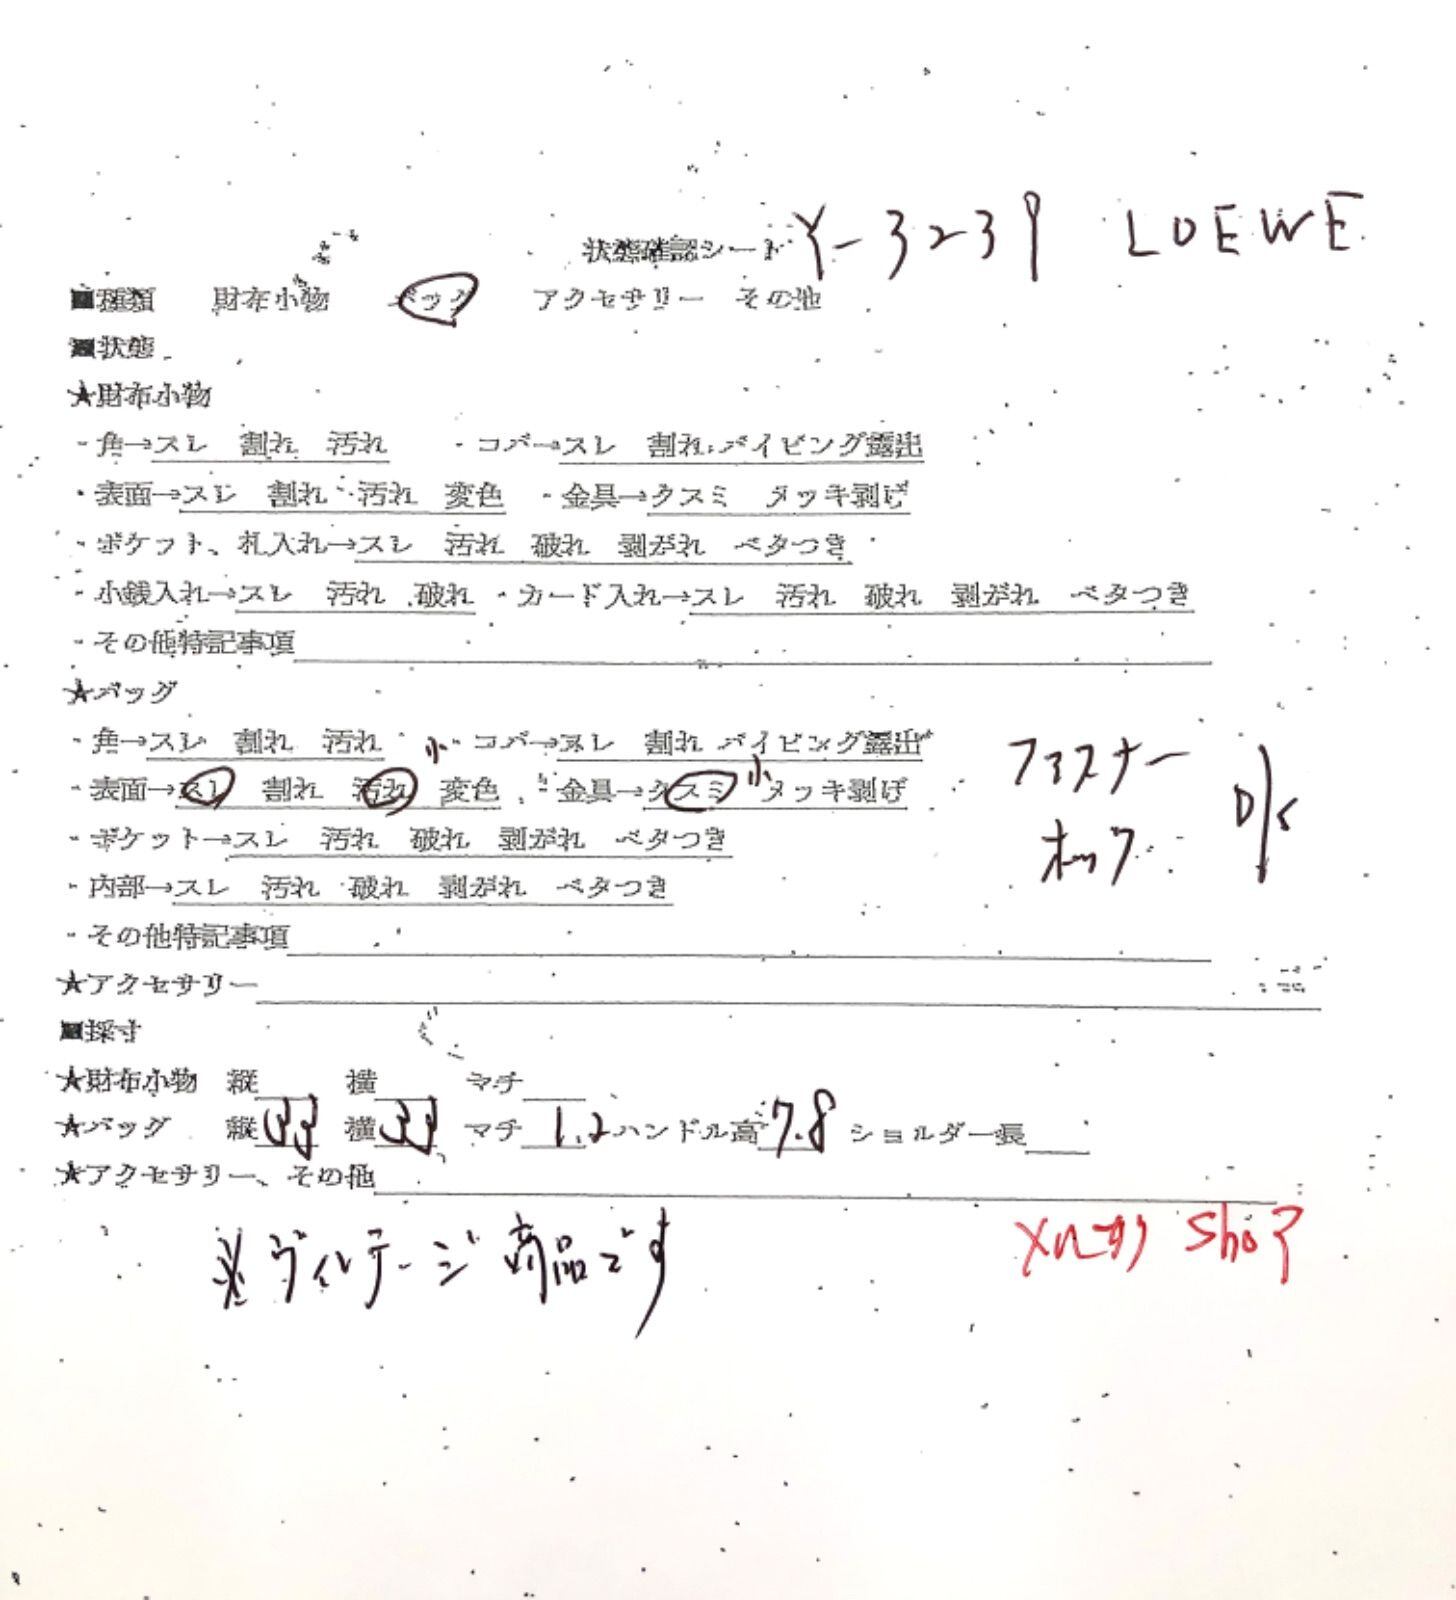 状態確認シート Y-3239 LOEWE
■種類 財布小物 バッグ アクセサリー その他
■状態
★財布小物
・角→スレ 割れ 汚れ ・コバ→スレ 割れ パイピング露出
・表面→スレ 割れ 汚れ 変色 ・金具→クスミ メッキ剥げ
・ポケット、札入れ→スレ 汚れ 破れ 剥がれ ベタつき
・小銭入れ→スレ 汚れ 破れ ・カード入れ→スレ 汚れ 破れ 剥がれ ベタつき
・その他特記事項
★バッグ
・角→スレ 割れ 汚れ 小 ・コバ→スレ 割れ パイピング露出
・表面→スレ 割れ 汚れ 変色 ・金具→クスミ 小 メッキ剥げ
ファスナー
ホック
・ポケット→スレ 汚れ 破れ 剥がれ ベタつき
・内部→スレ 汚れ 破れ 剥がれ ベタつき
・その他特記事項
★アクセサリー
■採寸
★財布小物 縦 横 マチ
★バッグ 縦33 横33 マチ1.2ハンドル高7.8 ショルダー長
★アクセサリー、その他
※ヴィンテージ商品です
メルカリ Shop